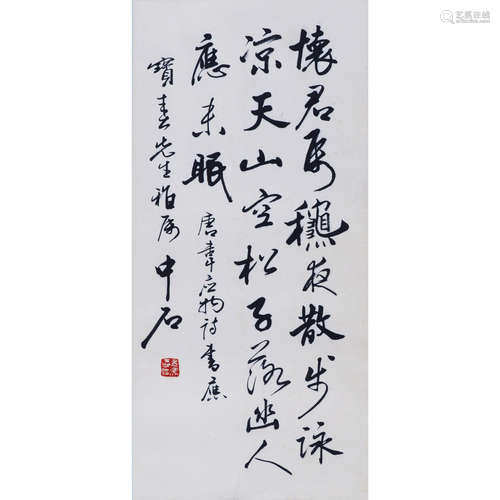 懷君屬龝夜散步詠
凉天山空松子落幽人
應未眠
唐韋应物詩書應
寶春先生雅属
中石